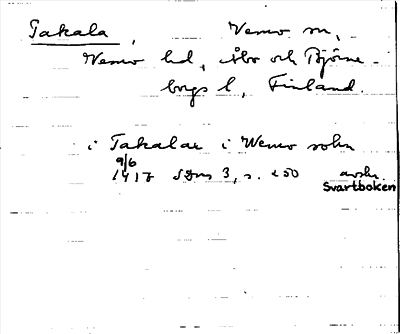 Takala, Vemo sn,
Vemo hd, Åbo och Björne-
borgs l, Finland.
i Takalax i Wemo sokn
9/6
1417 SDns 3, s. 250 avskr.
Svartboken